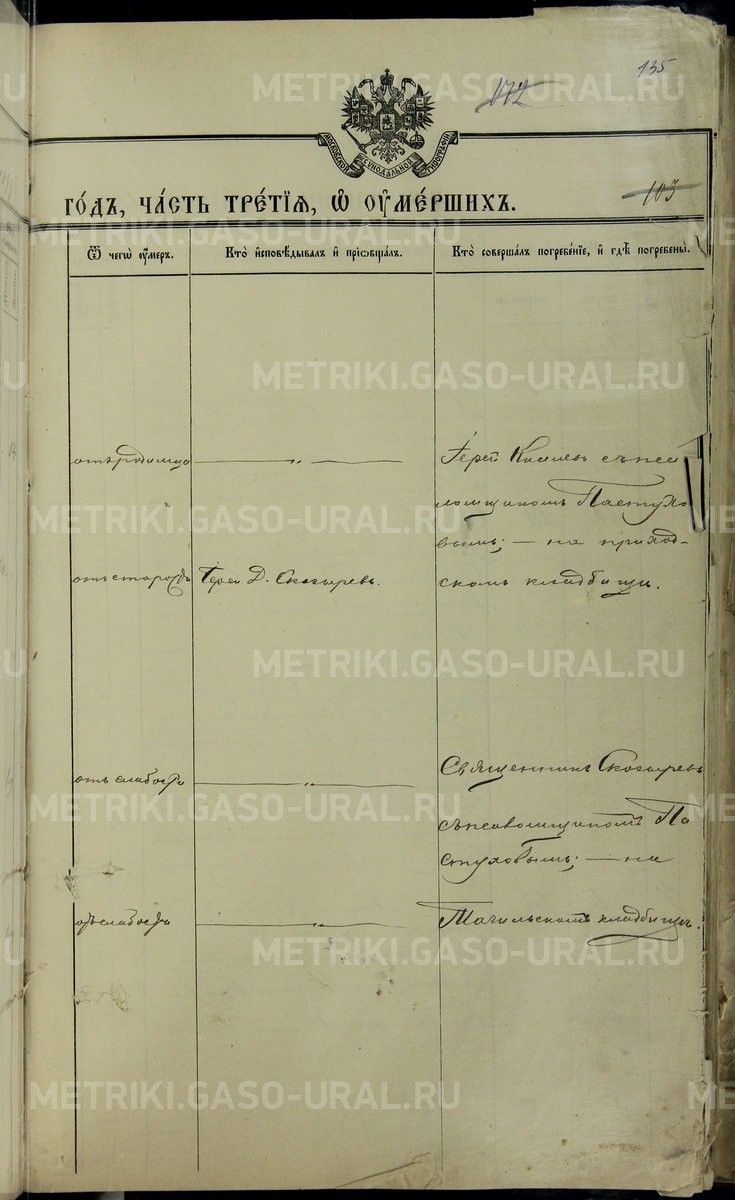 135
172
МОСКОВСКОЙ СѴНОДАЛЬНОЙ ТИПОГРАФІИ
ГО́ДЪ, ЧА́СТЬ ТРЕ́ТІѦ, Ѡ҆ ОУ҆МЕ́РШИХЪ.
103
Ѿ чегѡ̀ оу҆́меръ.
Кто̀ и҆сповѣ́дывалъ и҆ прїѡбща́лъ.
Кто̀ соверша́лъ погребе́нїе, и҆ гдѣ̀ погребены̀.
отъ родимца
Іерей съ псаломщикомъ Пастуховымъ; — на приходскомъ кладбищи.
отъ старости
Іерей Д. Скосыревъ.
отъ слабости
Священникъ Скосыревъ
съ псаломщикомъ Па
стуховымъ; — на
отъ слабости
Тагильскомъ кладбищѣ.
METRIKI.GASO-URAL.RU